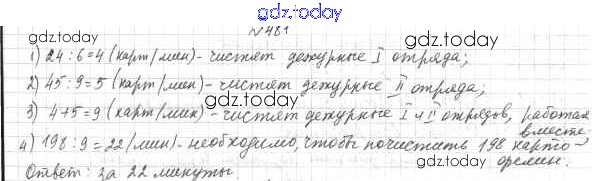 gdz.today
gdz.today gdz.today
№481
1) 24 : 6 = 4 (карт/мин) - чистят дежурные I отряда;
2) 45 : 9 = 5 (карт/мин) - чистят дежурные II отряда;
gdz.today
3) 4+5=9 (карт/мин) - чистят дежурные I и II отрядов, работая
вместе.
4) 198 : 9 = 22 (мин) - необходимо, чтобы почистить 198 карто-
фелин.
Ответ: за 22 минуты.
gdz.today gdz.today